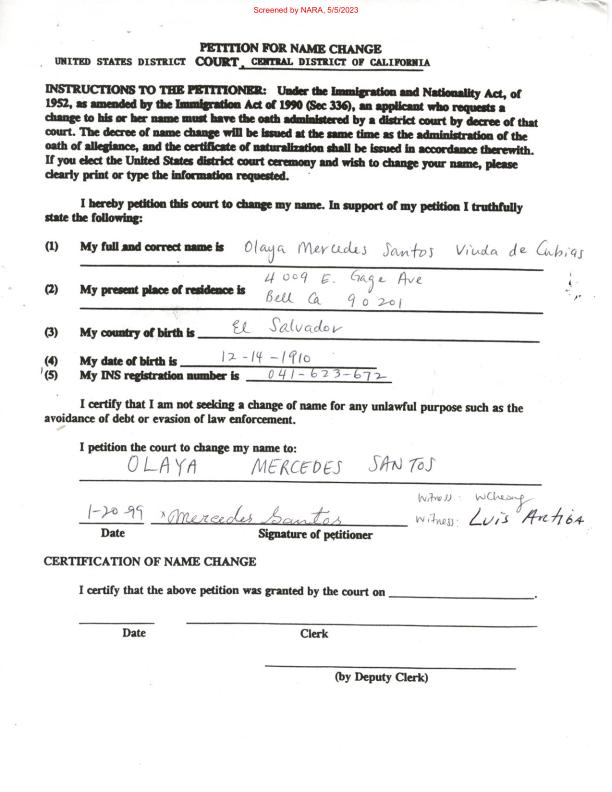 Screened by NARA, 5/5/2023
PETITION FOR NAME CHANGE
UNITED STATES DISTRICT COURT, CENTRAL DISTRICT OF CALIFORNIA
INSTRUCTIONS TO THE PETITIONER: Under the Immigration and Nationality Act, of
1952, as amended by the Immigration Act of 1990 (Sec 336), an applicant who requests a
change to his or her name must have the oath administered by a district court by decree of that
court. The decree of name change will be issued at the same time as the administration of the
oath of allegiance, and the certificate of naturalization shall be issued in accordance therewith.
If you elect the United States district court ceremony and wish to change your name, please
clearly print or type the information requested.
I hereby petition this court to change my name. In support of my petition I truthfully
state the following:
(1) My full and correct name is Olaya Mercedes Santos Viuda de Cubias
4009 E. Gage Ave
(2) My present place of residence is Bell Ca 90201
(3) My country of birth is El Salvador
(4) My date of birth is 12-14-1910
(5) My INS registration number is 041-623-672
I certify that I am not seeking a change of name for any unlawful purpose such as the
avoidance of debt or evasion of law enforcement.
I petition the court to change my name to:
OLAYA MERCEDES SANTOS
Witness: WCheong
1-20-99 x Mercedes Santos Witness: Luis Antiga
Date Signature of petitioner
CERTIFICATION OF NAME CHANGE
I certify that the above petition was granted by the court on ____.
Date Clerk
(by Deputy Clerk)